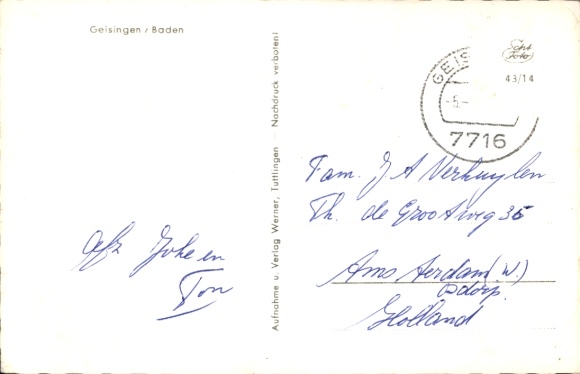 Geisingen / Baden
Aufnahme u. Verlag Werner, Tuttlingen — Nachdruck verboten!
GEIS
-6.-
7716
Echt
Foto
43/14
Fam. J A Verhuylen
Th. de Grootweg 35
Amsterdam (W.)
Osdorp.
Holland
Joke en
Ton